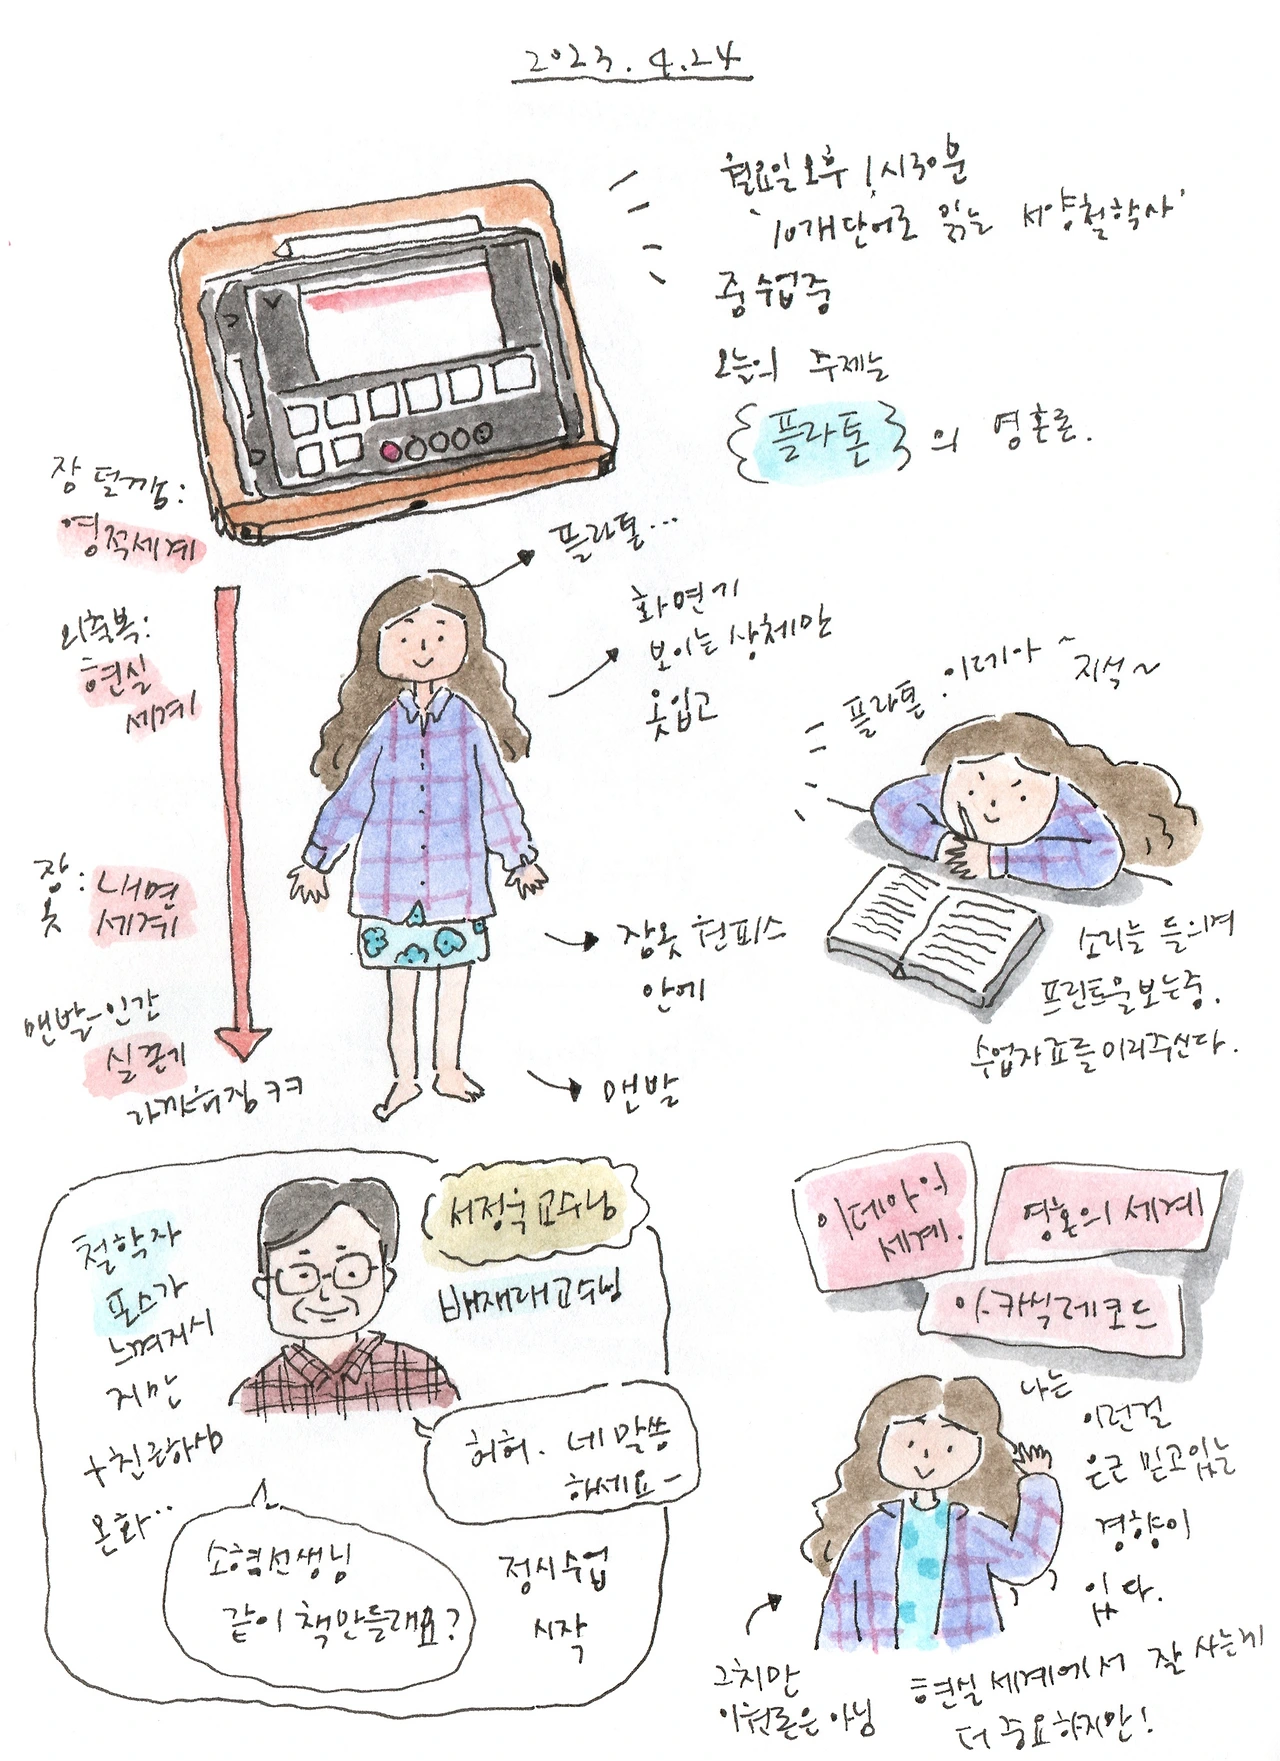 2023. 4.24
월요일 오후 1시30분
'10개 단어로 읽는 서양철학사'
줌 수업중
오늘의 주제는
{플라톤}의 영혼론.
장 덜깸:
영적세계
외출복:
현실
세계
잠옷:
내면
세계
맨발-인간
실존
플라톤...
화면에
보이는 상체만
옷입고
잠옷 원피스
안에
맨발
플라톤. 이데아~
지석~
소리는 들으며
프린트물 보는중.
수업자료를 미리주신다.
철학자
포스가
느껴지시
지만
+친근하심
온화..
서정욱교수님
배재대교수님
허허. 네 말씀
하세요-
소혐선생님
같이 책만들래요?
정시수업
시작
이데아의
세계.
영혼의 세계
아카식레코드
나는
이런걸
은근 믿고있는
경향이
있다.
그치만
이원론은 아님
현실 세계에서 잘 사는게
더 중요하지만!